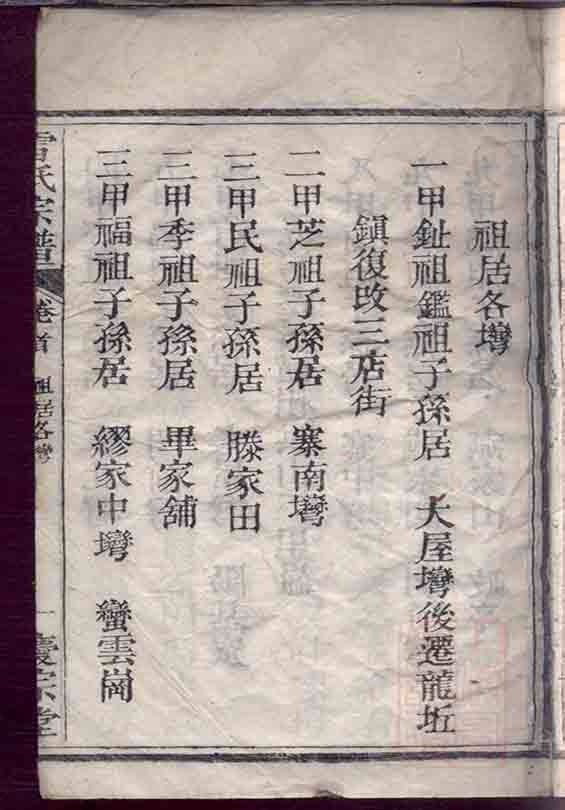 祖居各塆
一甲鈘祖鑑祖子孫居　大屋塆後遷龍坵
鎮復改三店街
二甲芝祖子孫居　寨南塆
三甲民祖子孫居　滕家田
三甲季祖子孫居　畢家舖
三甲福祖子孫居　繆家中塆　蠻雲崗
氏宗譜　卷首　祖居各塆　一　慶宗堂